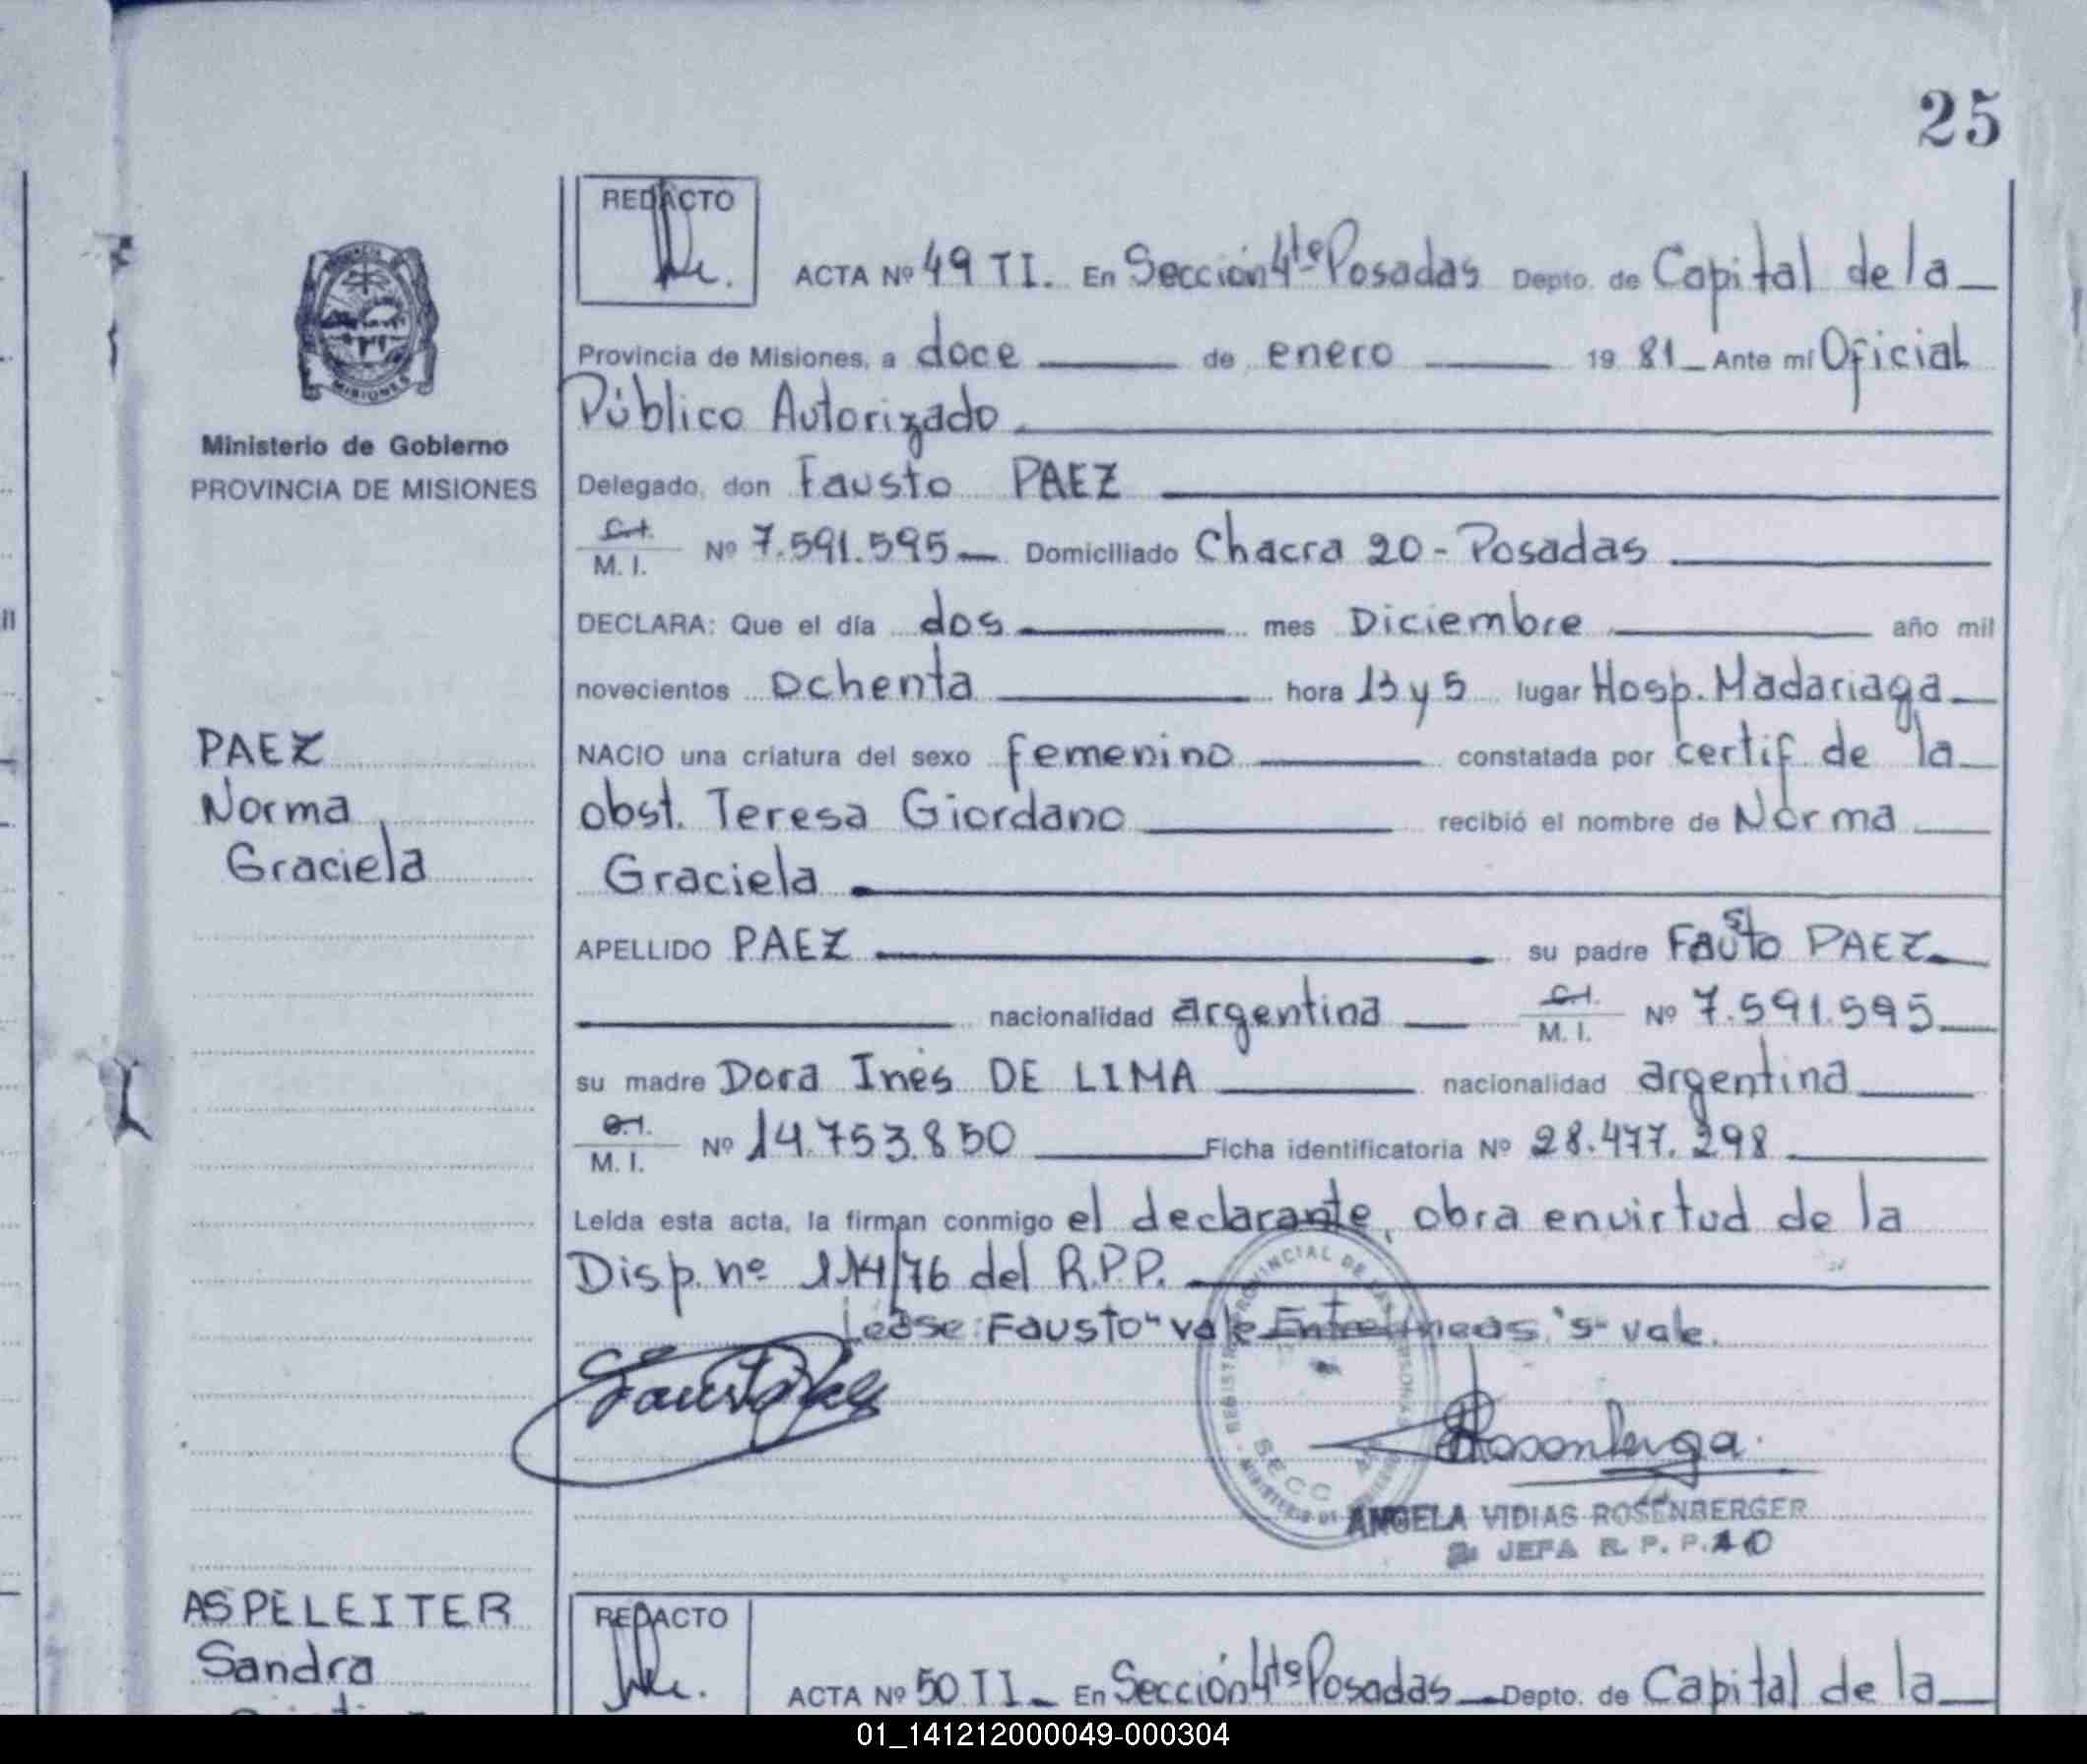 25
REDACTO
ACTA Nº 49 TI. En Sección 4ta Posadas Depto. de Capital de la
Provincia de Misiones, a doce de enero 19 81 Ante mí Oficial
Público Autorizado
Ministerio de Gobierno
PROVINCIA DE MISIONES
Delegado, don Fausto PAEZ
C.I.
M. I. Nº 7.591.595 Domiciliado Chacra 20 - Posadas
DECLARA: Que el día dos mes Diciembre año mil
novecientos Ochenta hora 13 y 5 lugar Hosp. Madariaga
PAEZ
Norma
Graciela
NACIO una criatura del sexo femenino constatada por certif de la
obst. Teresa Giordano recibió el nombre de Norma
Graciela
APELLIDO PAEZ su padre Fausto PAEZ
nacionalidad argentina C.I.
M. I. Nº 7.591.595
su madre Dora Inés DE LIMA nacionalidad argentina
C.I.
M. I. Nº 14.753.850 Ficha identificatoria Nº 28.477.298
Leída esta acta, la firman conmigo el declarante, obra envirtud de la
Disp. nº 114/76 del R.P.P.
Lease: Fausto" vale Entrelineas "s" vale.
REGISTRO PROVINCIAL DE LAS PERSONAS
SECC 4
ANGELA VIDIAS ROSENBERGER
JEFA R. P. P.
ASPELEITER
Sandra
REDACTO
ACTA Nº 50 TI En Sección 4ta Posadas Depto. de Capital de la
01_141212000049-000304